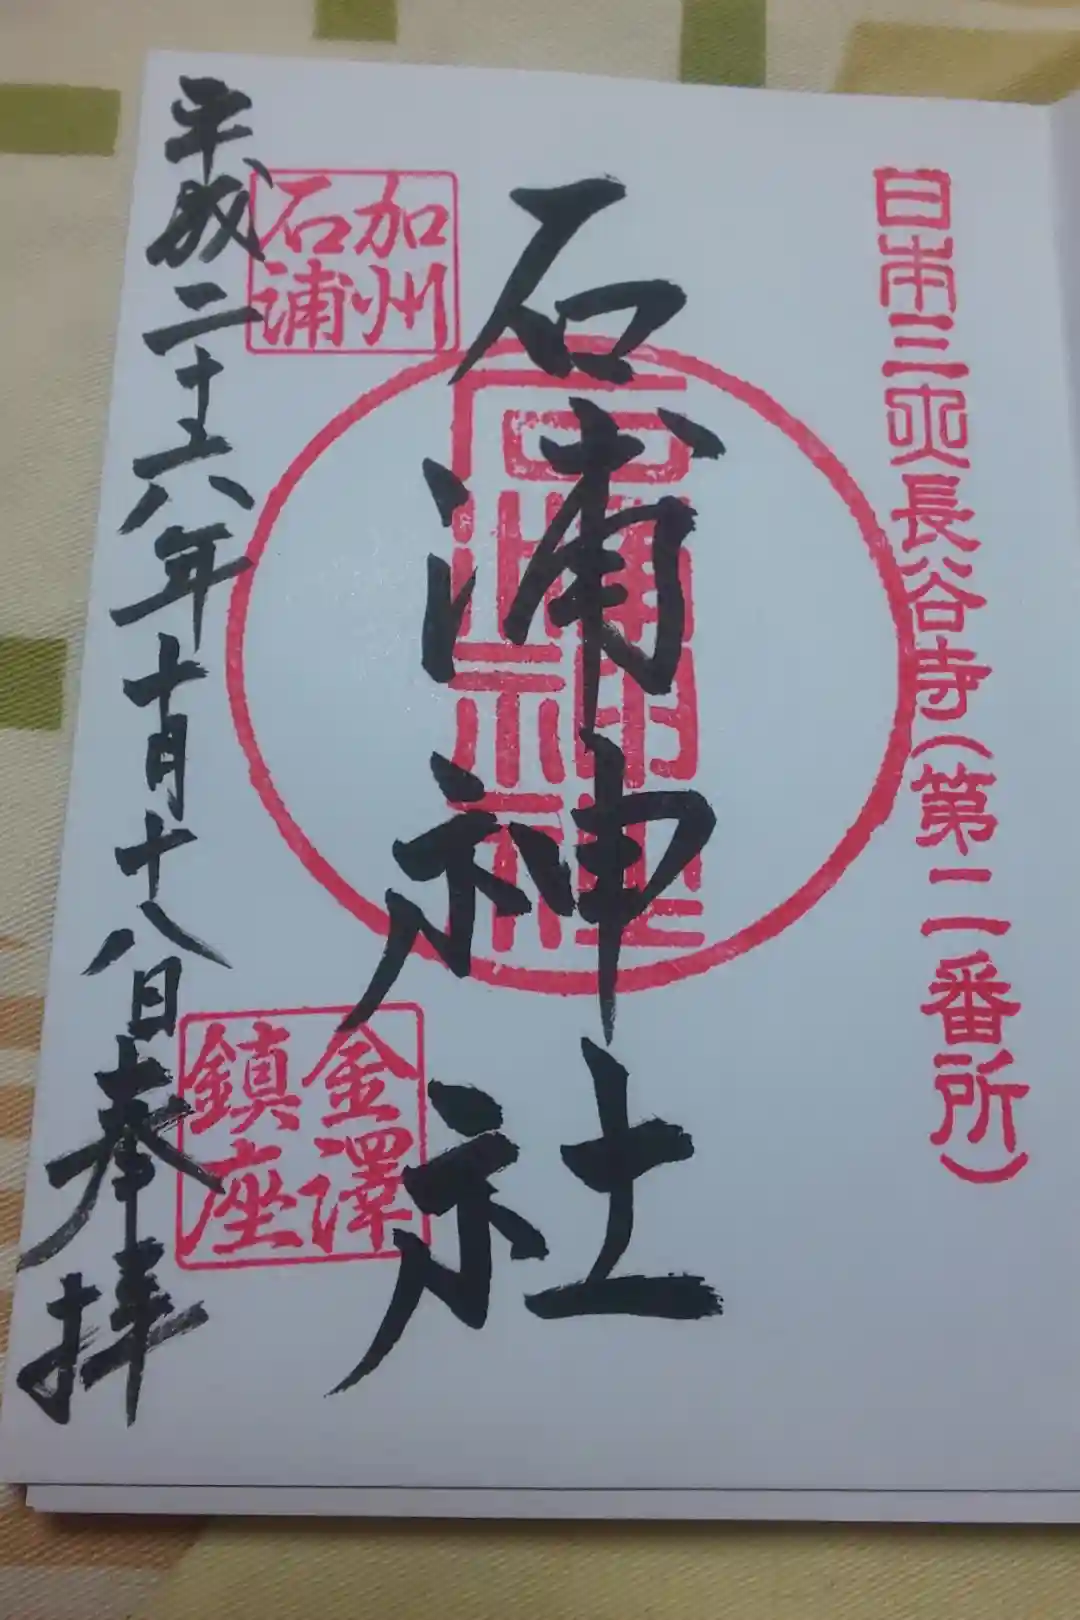 日本三所長谷寺(第二番所)
石浦神社
石浦神社
加州
石浦
金澤
鎮座
平成二十六年十月十八日奉拝